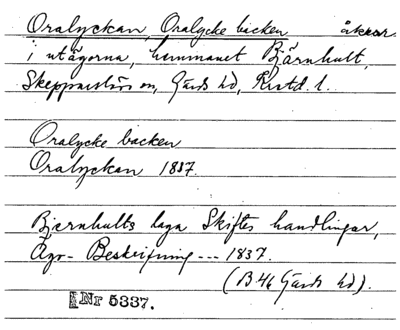 Oralyckan, Oralycke backen åkrar
i utägorna, hemmanet Bjärnhult,
Skepparslövs sn, Gärds hd, Krstd. l.
Oralycke backen
Oralyckan 1837.
Bjernhults laga Skiftes handlingar,
Ägo- Beskrifning --- 1837.
(B46 Gärds hd).
Nr 5337.